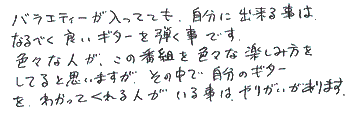 バラエティーが入ってても、自分に出来る事は、
なるべく良いギターを弾く事です。
色々な人が、この番組を色々な楽しみ方を
してると思いますが、その中で自分のギター
を、わかってくれる人がいる事は、やりがいがあります。